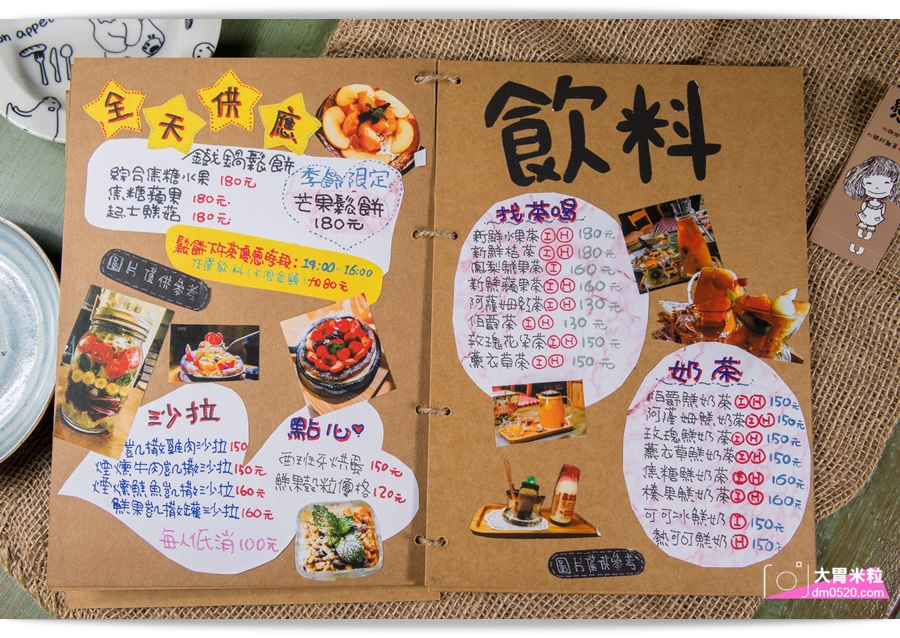 on appet
全天供應
鐵鍋鬆餅
綜合焦糖水果 180元
焦糖蘋果 180元
起士鮮菇 180元
季節限定
芒果鬆餅
180元
鬆餅下午茶優惠時段：14:00-16:00
任選飲料(不限金額)加80元
圖片僅供參考
沙拉
凱撒雞肉沙拉 150元
煙燻牛肉凱撒沙拉 150元
煙燻鮭魚凱撒沙拉 160元
鮮果凱撒罐沙拉 160元
每人低消100元
點心
西班牙烘蛋 150元
鮮果穀粒優格 120元
飲料
找茶喝
新鮮水果茶 I H 180元
新鮮桔茶 I H 180元
鳳梨鮮果茶 I 160元
新鮮蘋果茶 I H 160元
阿薩姆紅茶 I H 130元
伯爵茶 I H 130元
玫瑰花朵茶 I H 150元
薰衣草茶 I H 150元
奶茶
伯爵鮮奶茶 I H 150元
阿薩姆鮮奶茶 I H 150元
玫瑰鮮奶茶 I H 150元
薰衣草鮮奶茶 I H 150元
焦糖鮮奶茶 I H 160元
榛果鮮奶茶 I H 160元
可可冰鮮奶 I 150元
熱可可鮮奶 H 150元
圖片僅供參考
大胃米粒
dm0520.com